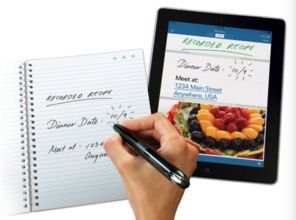 RECORDED RECIPE
Dinner Date: 10/9
Meet at: 1234
Any
RECORDED RECIPE
Dinner Date: 10/9
Meet at:
1234 Main Street
Anywhere, USA